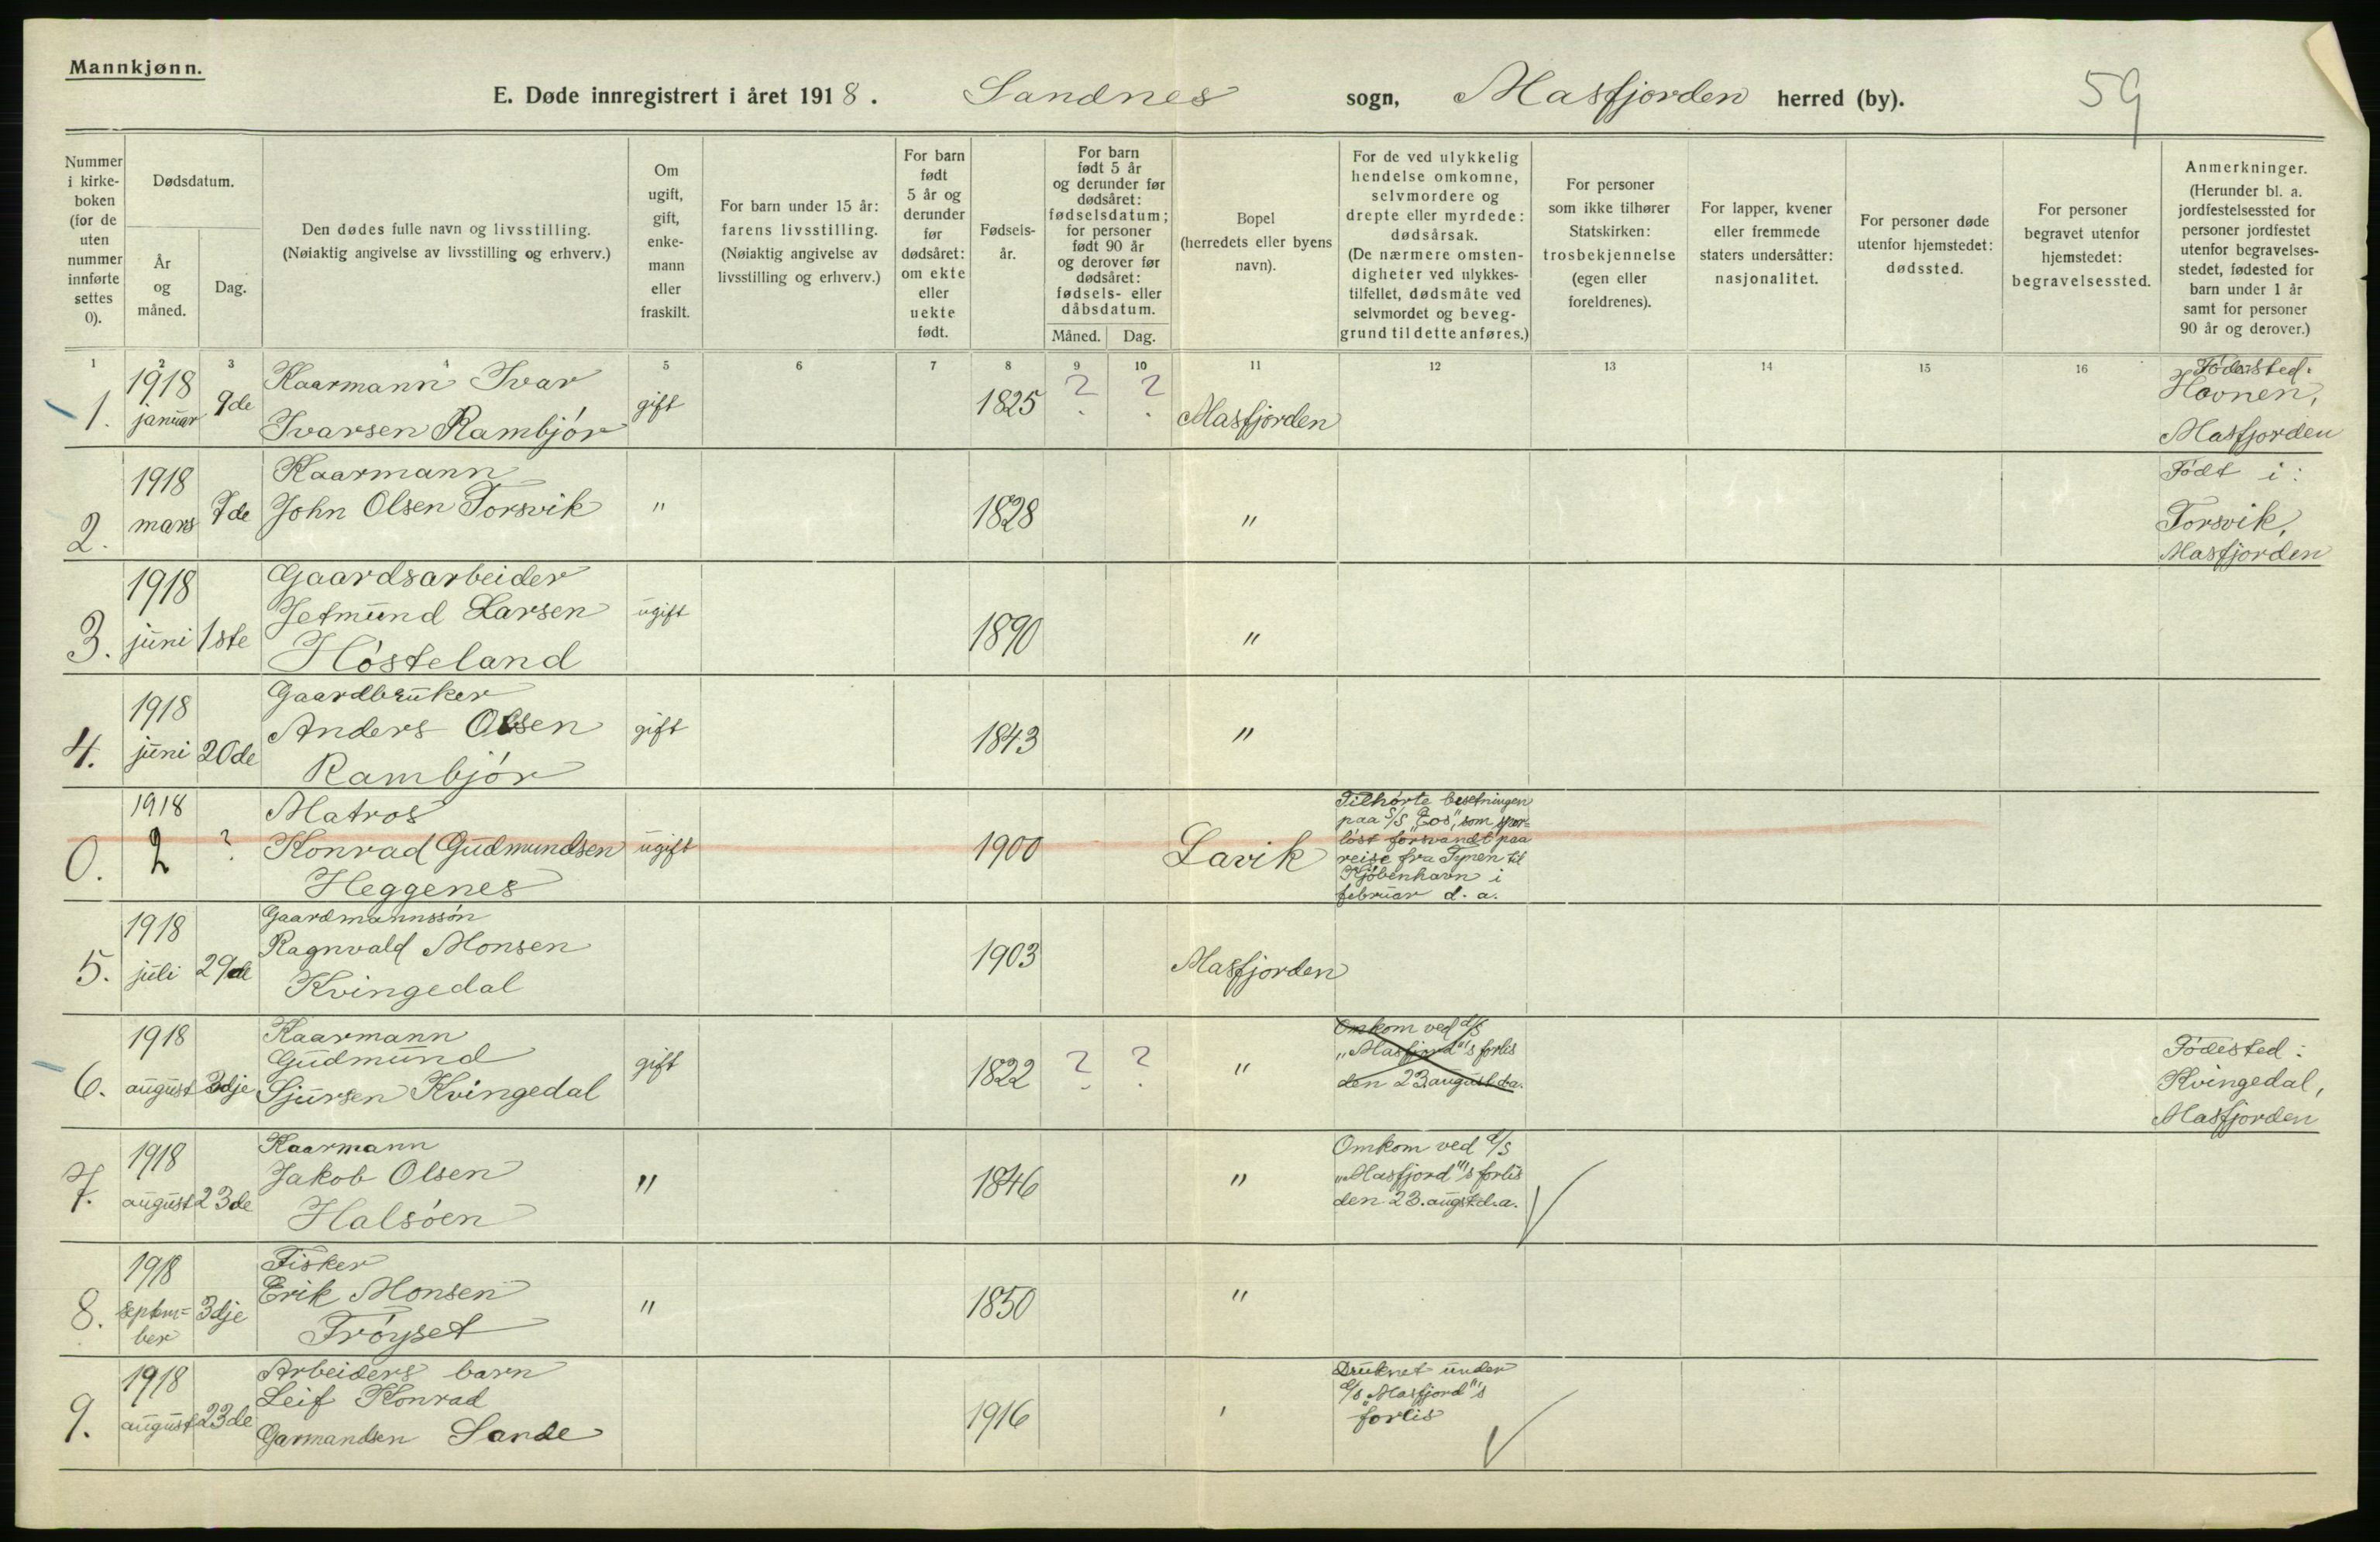 Mannkjønn.
E. Døde innregistrert i året 1918. Sandnes sogn, Masfjorden herred (by). 59
Nummer i kirke- boken (for de uten nummer innførte settes 0).
Dødsdatum.
År og måned.
Dag.
Den dødes fulle navn og livsstilling.
(Nøiaktig angivelse av livsstilling og erhverv.)
Om ugift, gift, enke- mann eller fraskilt.
For barn under 15 år: farens livsstilling. (Nøiaktig angivelse av livsstilling og erhverv.)
For barn født 5 år og derunder før dødsåret: om ekte eller uekte født.
Fødsels- år.
For barn født 5 år og derunder før dødsåret: fødselsdatum; for personer født 90 år og derover før dødsåret: fødsels- eller dåbsdatum.
Måned. Dag.
Bopel (herredets eller byens navn).
For de ved ulykkelig hendelse omkomne, selvmordere og drepte eller myrdede: dødsårsak. (De nærmere omsten- digheter ved ulykkes- tilfellet, dødsmåte ved selvmordet og beveg- grund til dette anføres.)
For personer som ikke tilhører Statskirken: trosbekjennelse (egen eller foreldrenes).
For lapper, kvener eller fremmede staters undersåtter: nasjonalitet.
For personer døde utenfor hjemstedet: dødssted.
For personer begravet utenfor hjemstedet: begravelsessted.
Anmerkninger. (Herunder bl. a. jordfestelsessted for personer jordfestet utenfor begravelses- stedet, fødested for barn under 1 år samt for personer 90 år og derover.)
1 2 3 4 5 6 7 8 9 10 11 12 13 14 15 16
1. 1918 januar 9de
Kaarmann Ivar
Ivarsen Rambjör
gift 1825 ? ? Masfjorden
Fødested:
Hovnen,
Masfjorden
2. 1918 mars 7de
Kaarmann
John Olsen Torsvik
" 1828 "
Født i:
Torsvik,
Masfjorden
3. 1918 juni 1ste
Gaardsarbeider
Jetmund Larsen
Hösteland
ugift 1890 "
4. 1918 juni 20de
Gaardbruker
Anders Olsen
Rambjör
gift 1843 "
0. 1918 2 ?
Matros
Konrad Gudmundsen
Heggenes
ugift 1900 Lavik
Tilhørte besetningen
paa S/S "Eos", som spor=
löst forsvandt paa
reise fra Tynen til
Kjöbenhavn i
februar d. a.
5. 1918 juli 29de
Gaardmannssön
Ragnvald Monsen
Kvingedal
1903 Masfjorden
6. 1918 august 3dje
Kaarmann
Gudmund
Sjursen Kvingedal
gift 1822 ? ? "
Omkom ved d/s
"Masfjord"'s forlis
den 23. august d.a.
Födested:
Kvingedal,
Masfjorden
7. 1918 august 23de
Kaarmann
Jakob Olsen
Halsöen
" 1846 "
Omkom ved d/s
"Masfjord"'s forlis
den 23. augst. d.a.
8. 1918 septem= ber 3dje
Fisker
Erik Monsen
Tröyset
" 1850 "
9. 1918 august 23de
Arbeiders barn
Leif Konrad
Garmandsen Sande
1916 '
Druknet under
d/s "Masfjord"'s
forlis